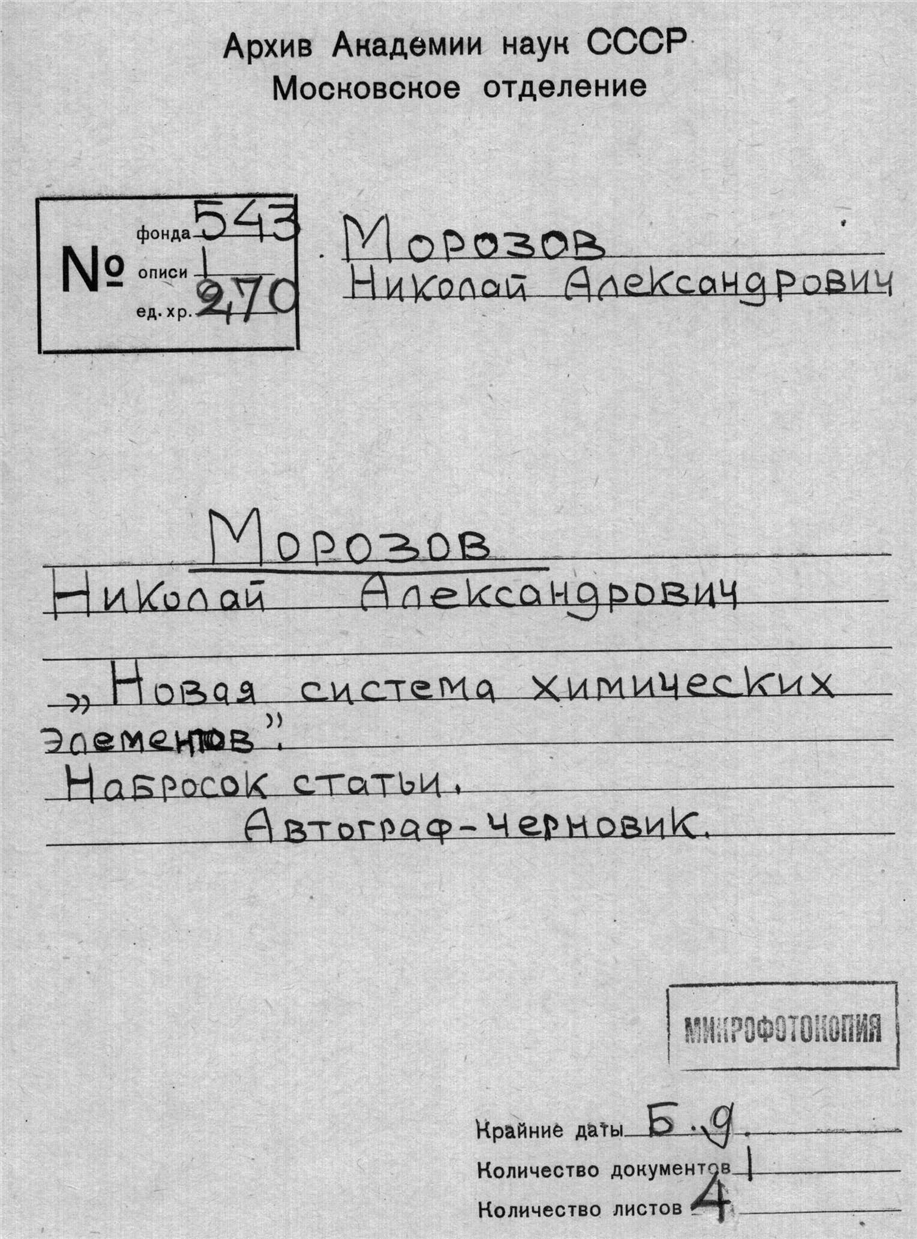 Архив Академии наук СССР
Московское отделение
№
фонда 543
описи 1
ед. хр. 270
Морозов
Николай Александрович
Морозов
Николай Александрович
„Новая система химических
элементов”.
Набросок статьи.
Автограф-черновик.
МИКРОФОТОКОПИЯ
Крайние даты Б.д.
Количество документов 1
Количество листов 4